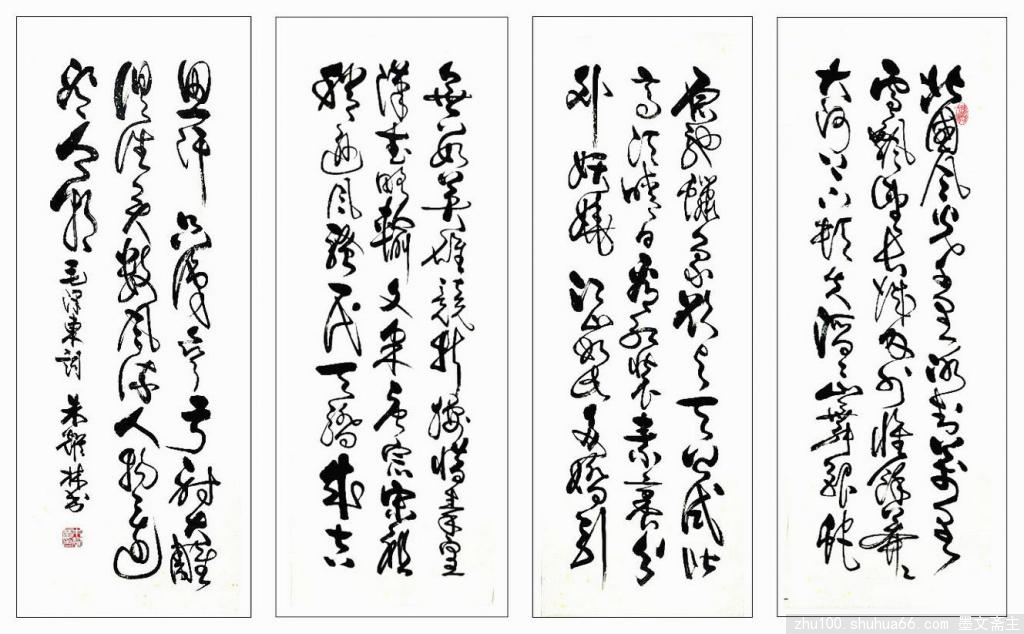 北國风光千里冰封萬里
雪飄望长城内外惟餘莽々
大河上下顿失滔々山舞银蛇
原驰蠟象欲与天公试比
高须晴日看红装素裹分
外妖娆江山如此多娇引
無数英雄競折腰惜秦皇
漢武略輸文采唐宗宋祖
稍逊风骚一代天骄成吉
思汗只识弯弓射大雕
俱往矣数风流人物还
看今朝
毛澤東詞 朱 林书
zhu100.shuhua66.com 墨文斋主